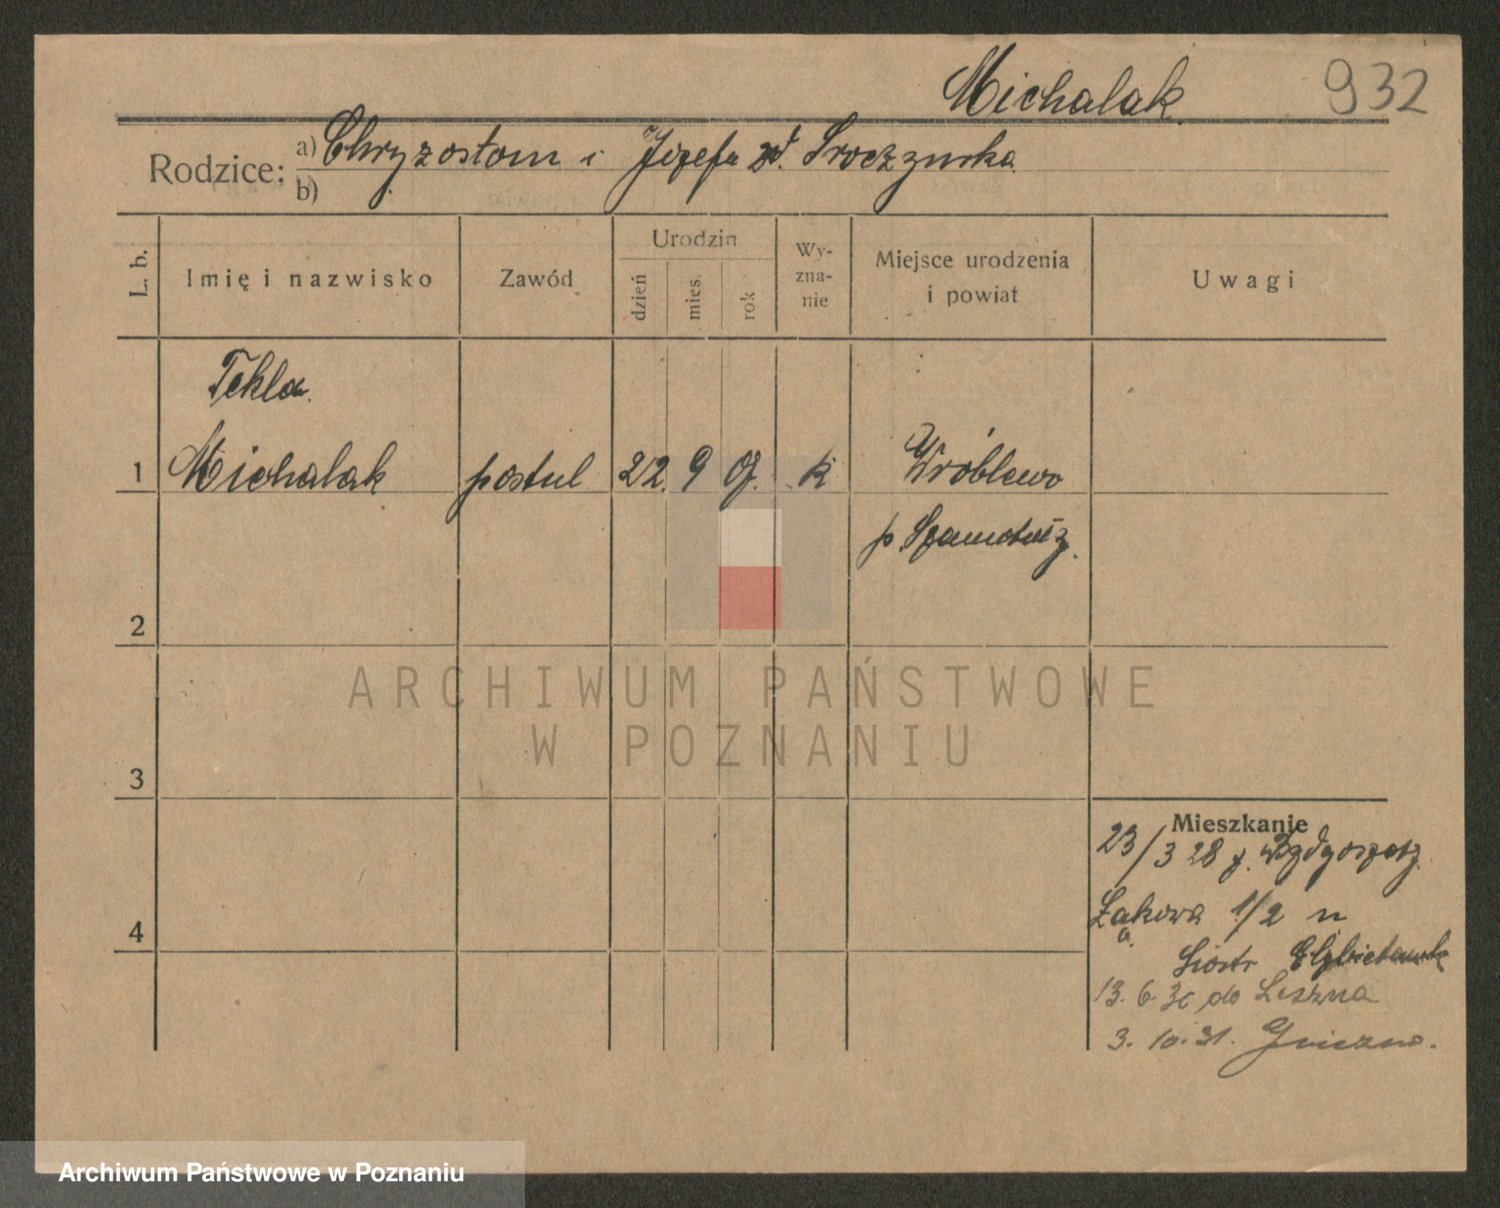 Michalak 932
Rodzice: a) Chryzostom i Józefa zd. Sroczyńska
b)
L. b. Imię i nazwisko Zawód Urodzin dzień mies. rok Wy-zna-nie Miejsce urodzenia i powiat Uwagi
Tekla
1 Michalak postul 22. 9 07. k Wróblewo
p. Szamotuły
2
3
4
Mieszkanie
23/3 28 z Bydgoszcz
Łąkowa 1/2 u
Siostr Elżbietanek
13. 6. 30 do Leszna
3. 10. 31. Gniezno.
ARCHIWUM PAŃSTWOWE
W POZNANIU
Archiwum Państwowe w Poznaniu